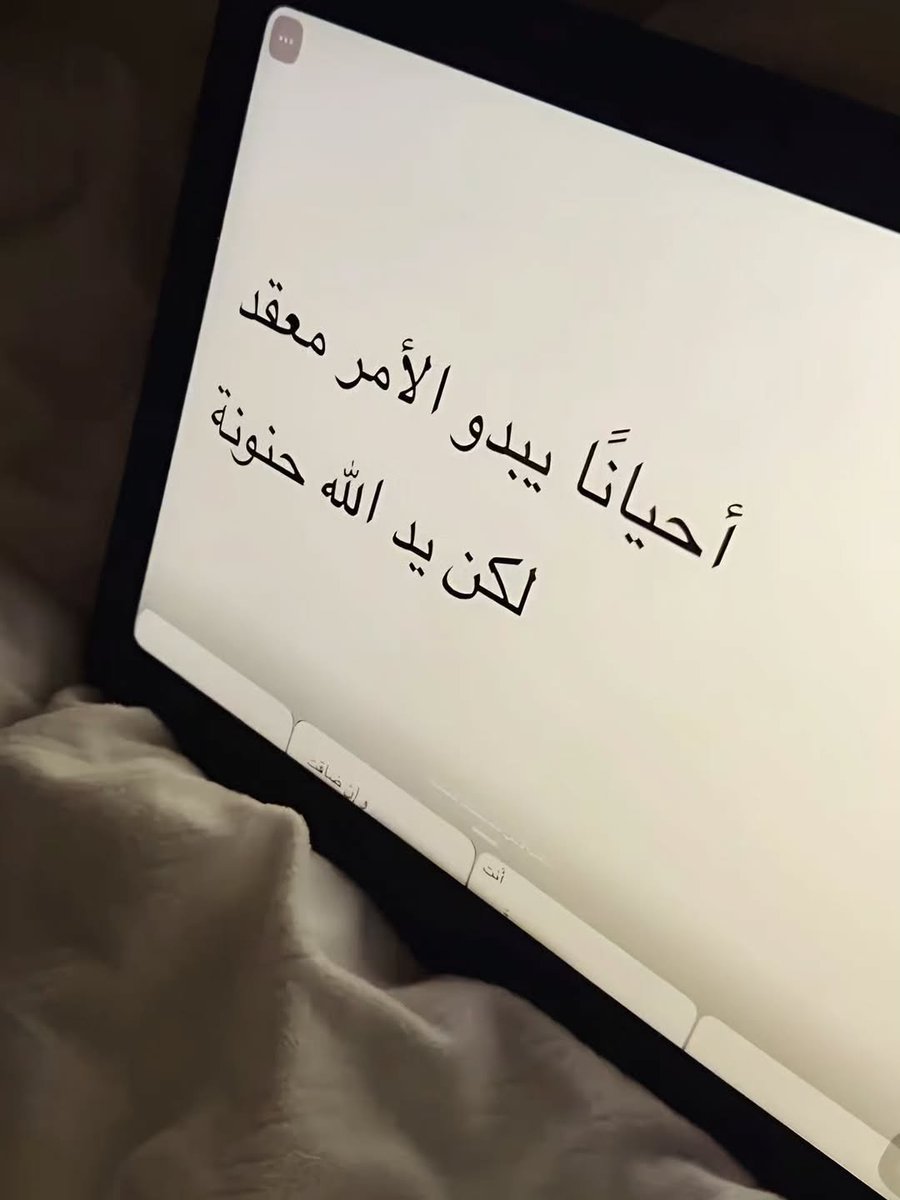 أحيانًا يبدو الأمر معقد
لكن يد الله حنونة
وإن ضاقت
أنت